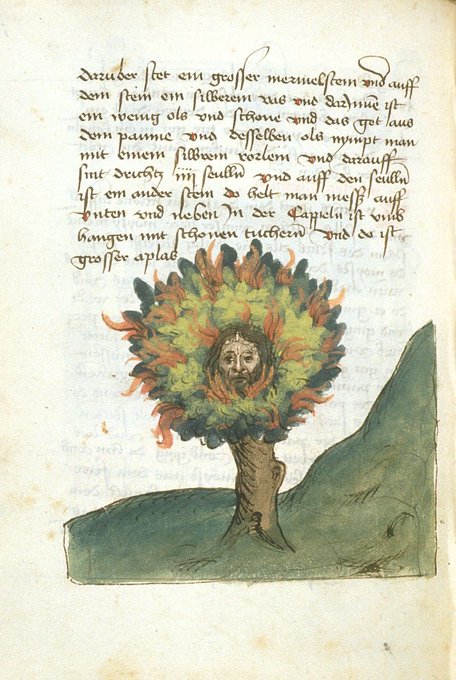 daruber stet ein grosser mermelstein und auff
dem stein ein silberein vas und darjnne ist
ein wenig ols und schone und das get aus
dem paume und desselben ols nympt man
mit einem silbrem rorlein und darauff
sint dreihtz iiij seulln und auff den seulln
ist ein ander stein do helt man messz auff
unten und neben jn der Cappeln ist umb
hangen mit schonen tuchern und do ist
grosser aplas